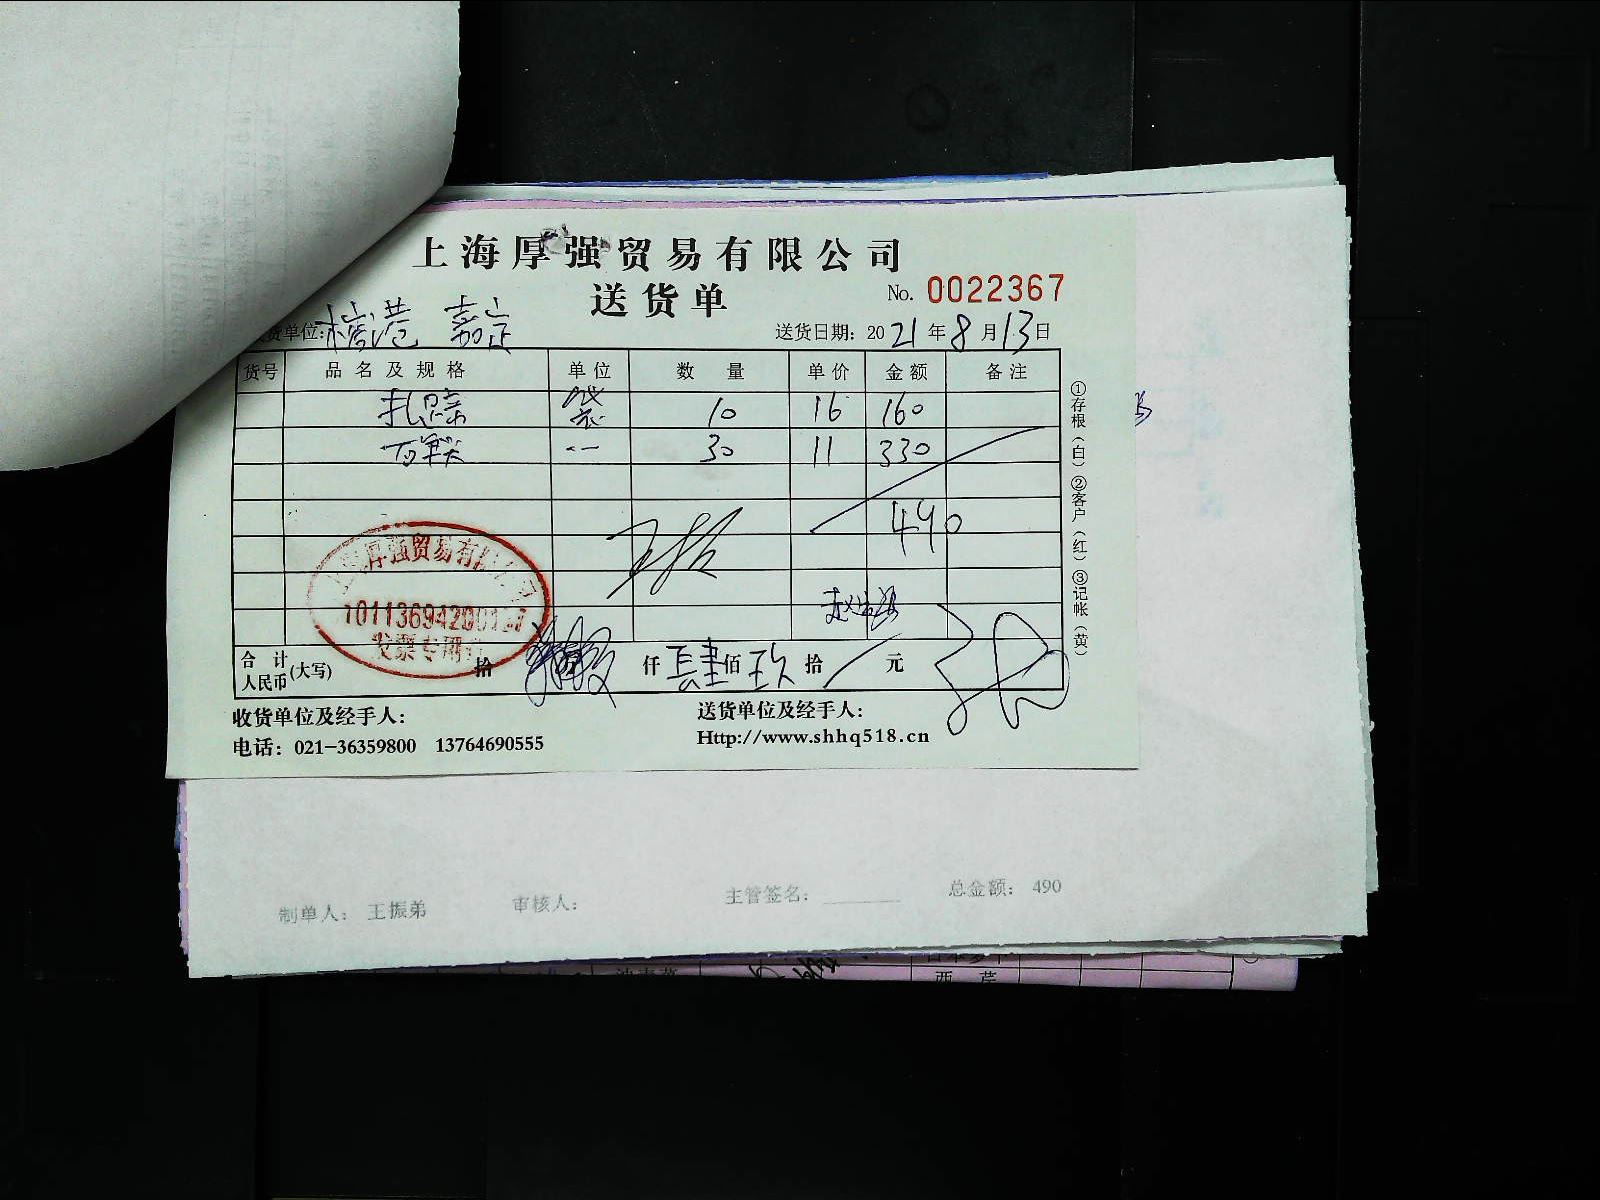 上海厚强贸易有限公司
送货单
No. 0022367
货单位: 嘉定
送货日期: 2021年8月13日
货号 品名及规格 单位 数量 单价 金额 备注
袋 10 16 160
30 11 330
490
①存根(白)②客户(红)③记帐(黄)
厚强贸易有
发票专用
合计人民币(大写) 拾 仟肆佰玖拾 元
收货单位及经手人:
送货单位及经手人:
电话: 021-36359800 13764690555
Http://www.shhq518.cn
制单人: 王振弟 审核人: 主管签名: 总金额: 490
西芹